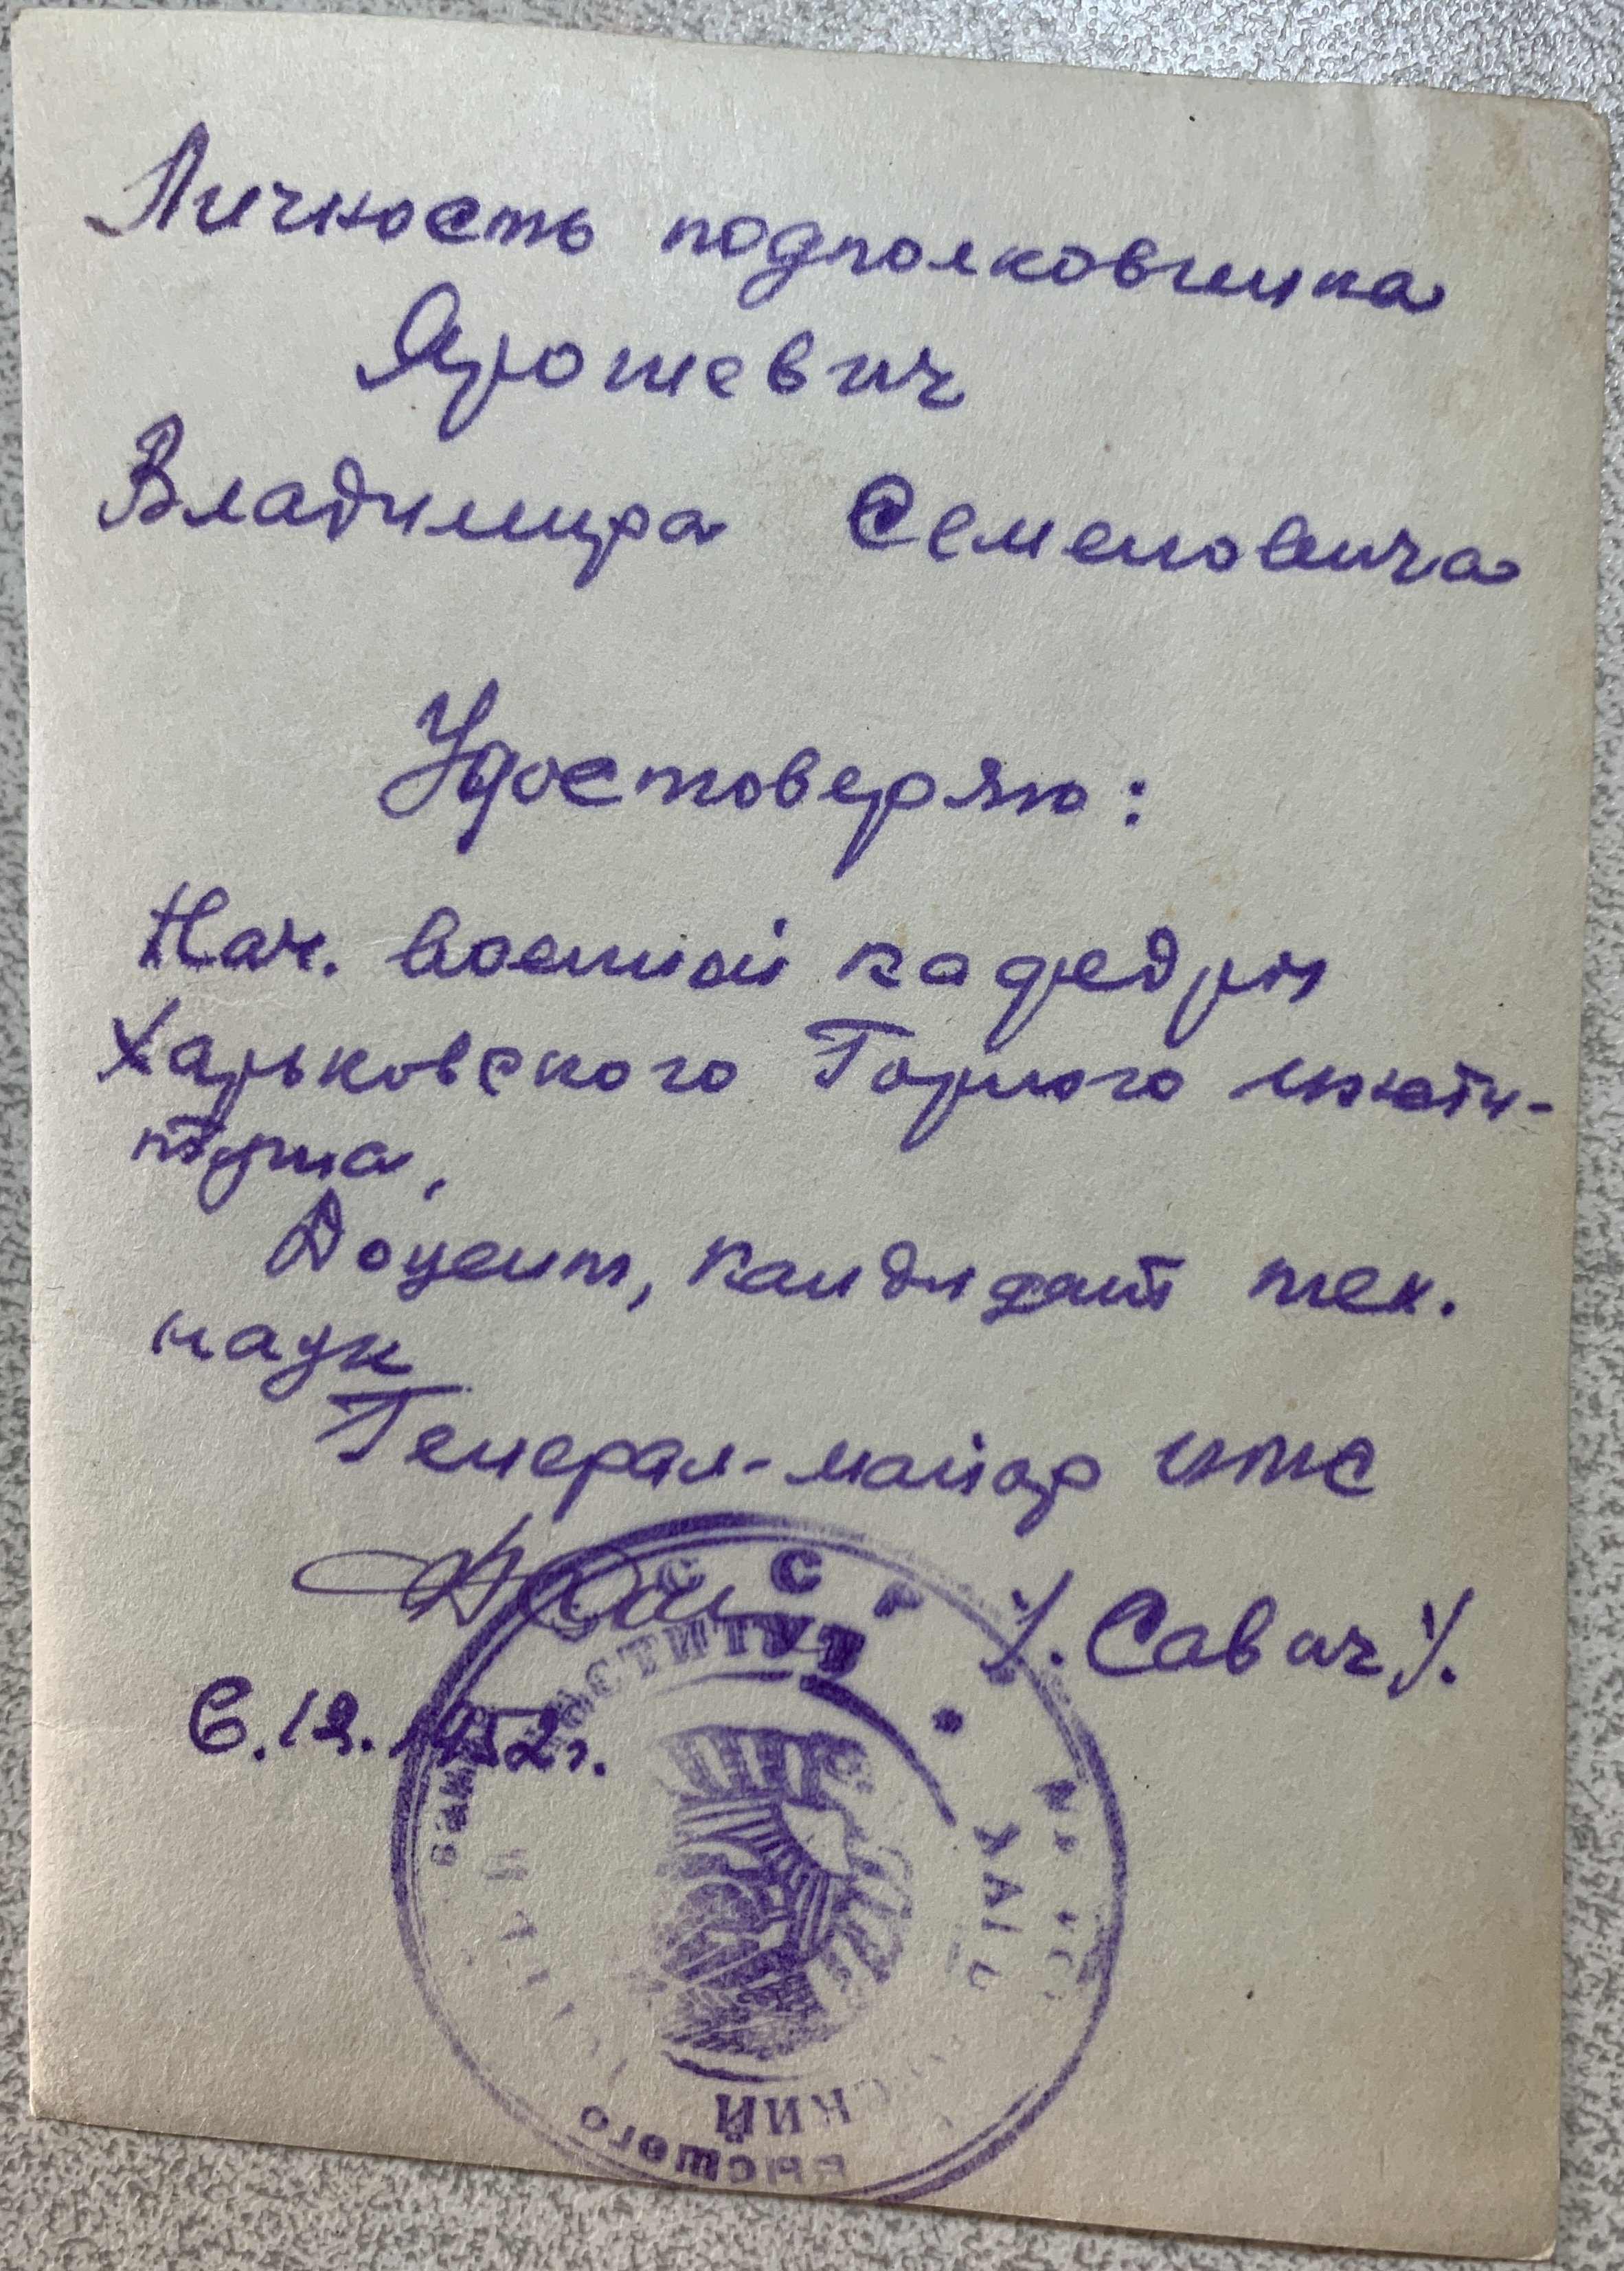 Личность подполковника
Ярошевич
Владимира Семеновича
Удостоверяю:
Нач. военной кафедры
Харьковского Горного инсти-
тута,
Доцент, кандидат тех.
наук
Генерал-майор ИТС
/. Савич /.
6.12.1952г.
ИНСТИТУТ
ВЫСШЕГО